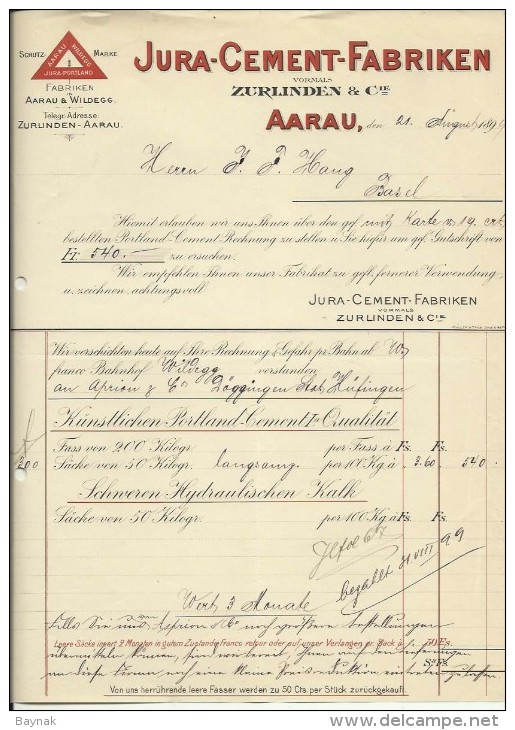 SCHUTZ- MARKE
AARAU WILDEGG
JURA-PORTLAND
FABRIKEN
IN
AARAU & WILDEGG.
Telegr. Adresse:
ZURLINDEN-AARAU.
JURA-CEMENT-FABRIKEN
VORMALS
ZURLINDEN & CIE
AARAU, den 21. August 1899
Herrn J. P. Haug
Basel
Hiemit erlauben wir uns Ihnen über den gefl. mit Karte v. 19. crt.
bestellten Portland-Cement Rechnung zu stellen u. Sie hiefür um gefl. Gutschrift von
Fr. 540.— zu ersuchen.
Wir empfehlen Ihnen unser Fabrikat zu gefl. fernerer Verwendung
u. zeichnen, achtungsvoll
JURA-CEMENT-FABRIKEN
VORMALS
ZURLINDEN & CIE
Wir verschickten heute auf Ihre Rechnung & Gefahr pr. Bahn al
franco Bahnhof Wildegg verstanden
an Döggingen Stat. Hüfingen
Künstlichen Portland-Cement Ia Qualität
Fass von 200 Kilogr. per Fass à Fs. Fs.
200 Säcke von 50 Kilogr. langsamz. per 100 Kg. à 3.60 540.-
Schweren Hydraulischen Kalk
Säcke von 50 Kilogr. per 100 Kg. à Fs. Fs.
bezahlt 21 VIII 99
Wert 3 Monate
Falls Sie und noch größere Bestellungen
Leere Säcke innert 2 Monaten in gutem Zustande Franco retour oder auf unser Verlangen pr. Sack à 70 Fs.
Von uns herrührende leere Fässer werden zu 50 Cts. per Stück zurückgekauft.
Baynak
www.delcampe.net